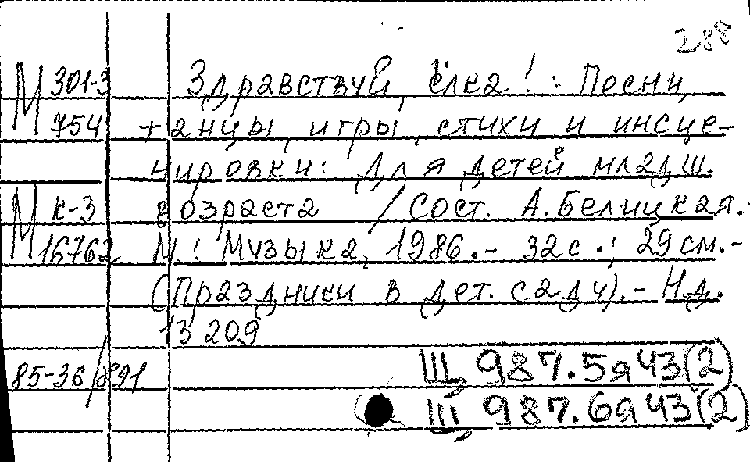 288
М 301-3 Здравствуй, ёлка! : Песни,
754 танцы, игры, стихи и инсце-
нировки: Для детей младш.
М К-3 возраста / Сост. А. Белицкая.-
16762 М.: Музыка, 1986.- 32 с.; 29 см.-
(Праздники в дет. саду).- Н.д.
13 209
85-36/891 Щ 987.5я43(2)
Щ 987.6я43(2)